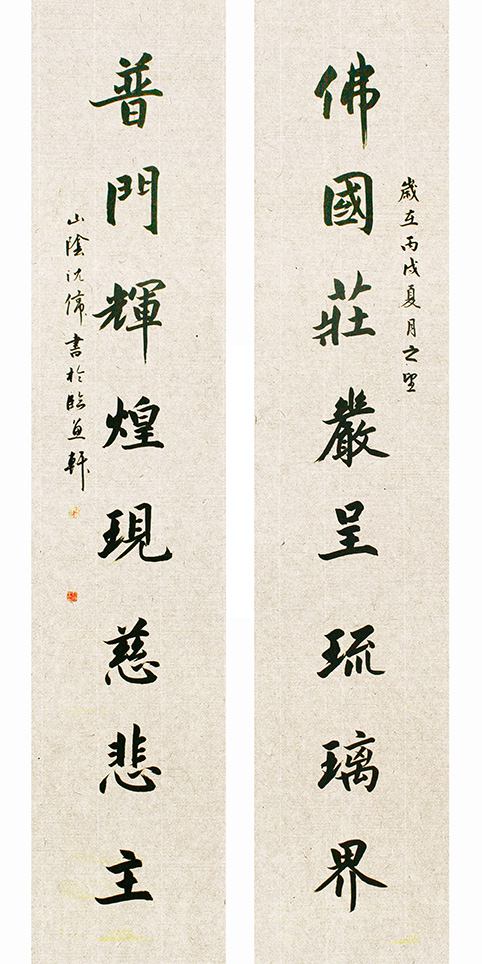 佛國莊嚴呈琉璃界
歲在丙戌夏月之望
普門輝煌現慈悲主
山陰沈偉書於臨池軒